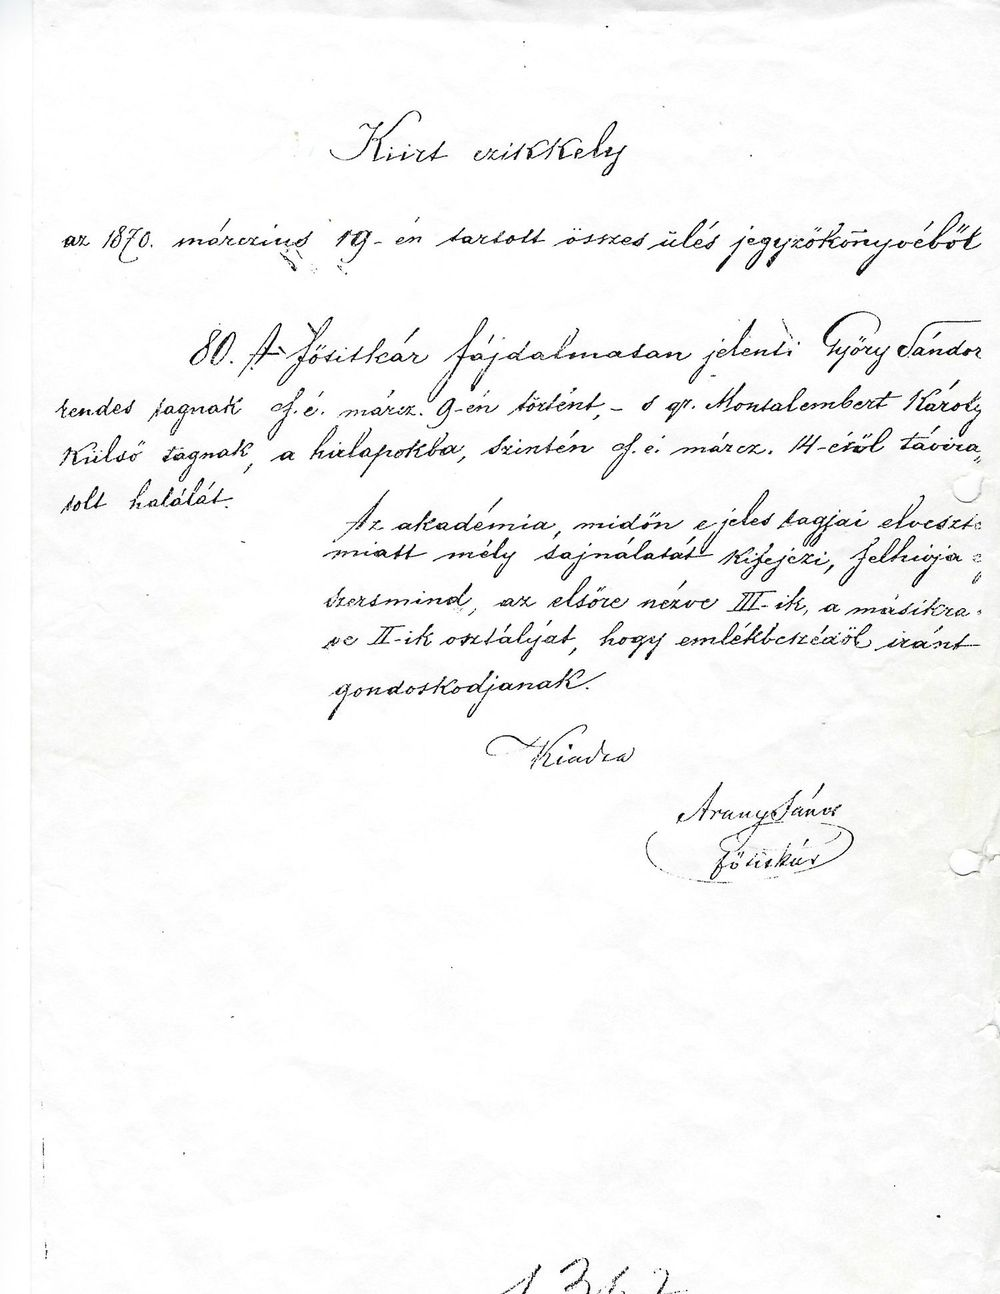 Kiirt czikkely
az 1870. márczius 19-én tartott összes ülés jegyzőkönyvéből
80. A főtitkár fájdalmasan jelenti Győry Sándor
rendes tagnak f. é. márcz. 9-én történt, – s gr. Montalembert Károly
külső tagnak, a hirlapokba, szintén f. é. márcz. 14-éről távira„
tolt halálát.
Az akadémia, midőn e jeles tagjai elveszte
miatt mély sajnálatát kifejezi, felhivja e
szersmind, az elsőre nézve III-ik, a másikra
ve II-ik osztályát, hogy emlékbeszédöl iránt
gondoskodjanak.
Kiadta
Arany János
főtitkár